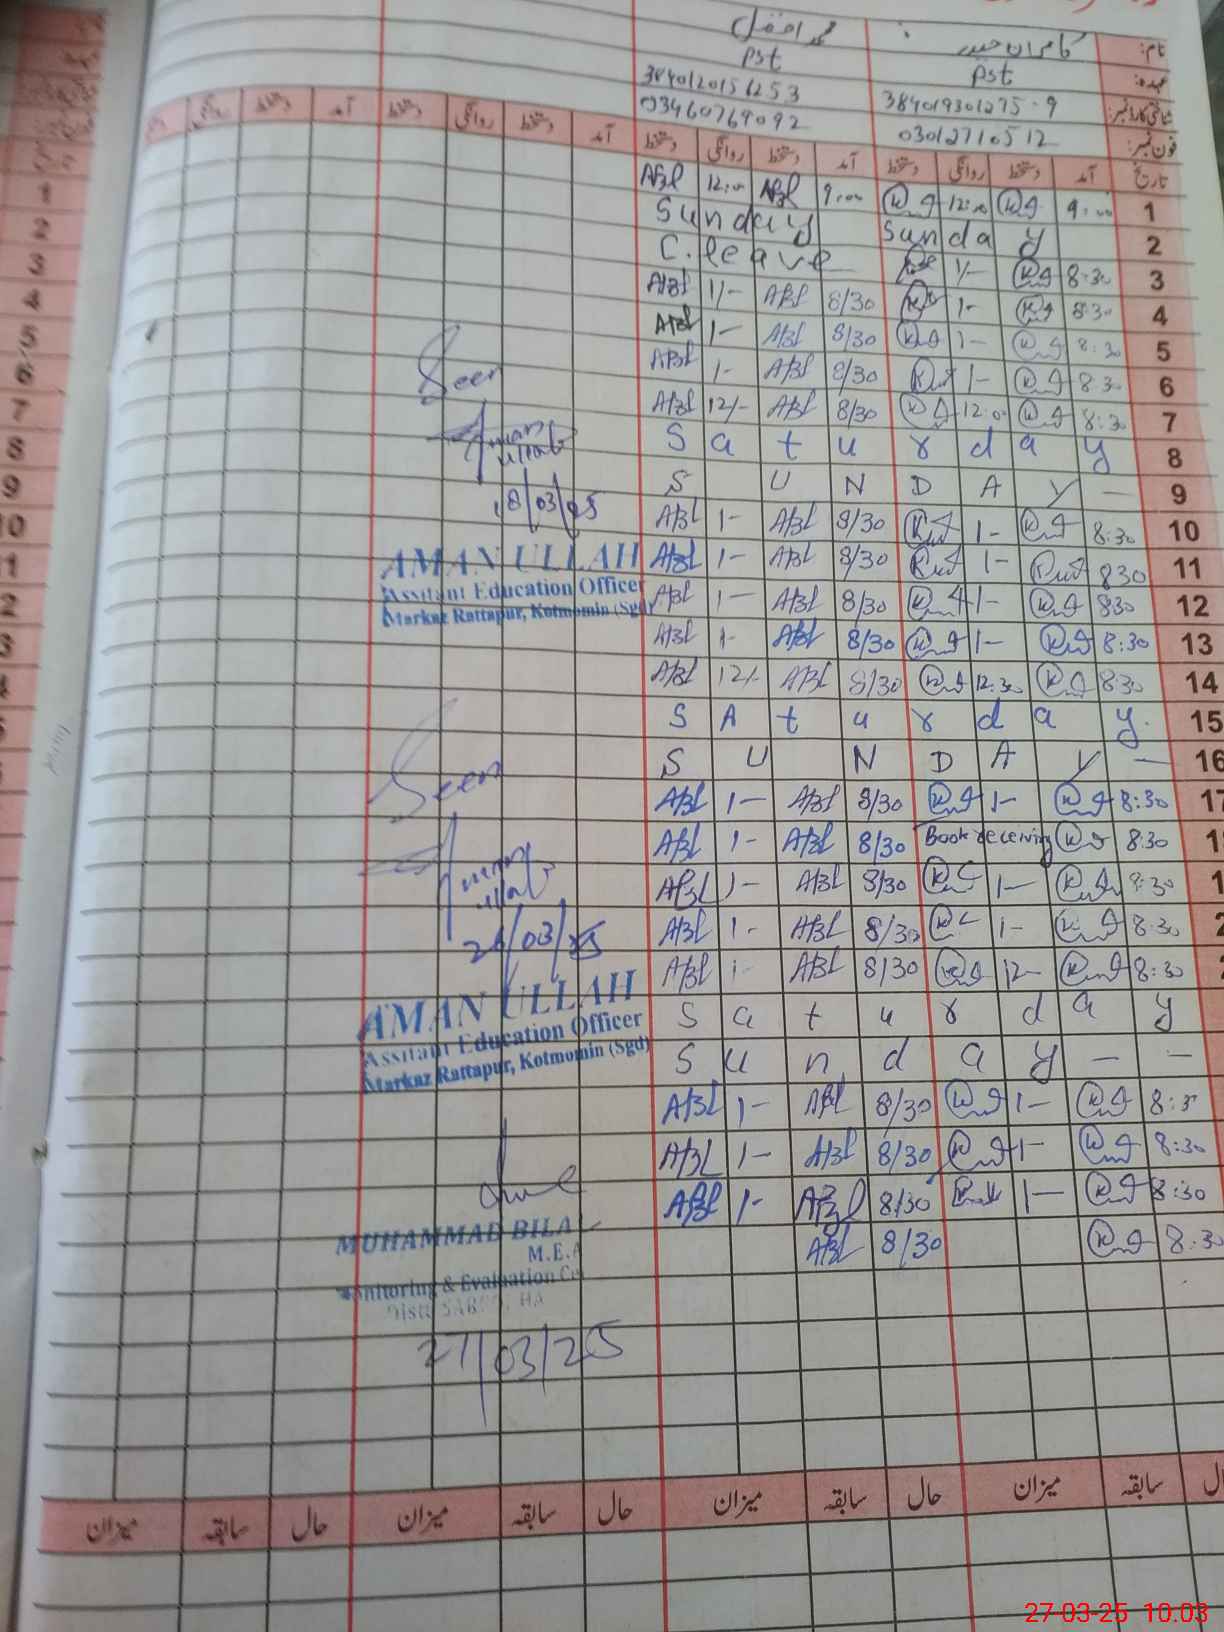 نام: کامران حیدر محمد افضل
عہدہ: Pst Pst
شناختی کارڈ نمبر: 384019301275-9 3840120151253
فون نمبر: 03012710512 03460769092
تاریخ آمد دستخط روانگی دستخط آمد دستخط روانگی دستخط آمد دستخط روانگی دستخط آمد دستخط روانگی
ABl 12:00 ABl 9:00 12:00 9:00 1
Sunday Sunday 2
C.leave 1/- 8:30 3
ABl 1/- ABl 8/30 1- 8:30 4
ABl 1- ABl 8/30 1- 8:30 5
ABl 1- ABl 8/30 1- 8:30 6
ABl 12/- ABl 8/30 12:00 8:30 7
Saturday 8
SUNDAY — 9
ABl 1- ABl 8/30 1- 8:30 10
ABl 1- ABl 8/30 1- 830 11
ABl 1- ABl 8/30 1- 830 12
ABl 1- ABl 8/30 1- 8:30 13
ABl 12/- ABl 8/30 12:30 8:30 14
SAturday. 15
SUNDAY — 16
ABl 1- ABl 8/30 1- 8:30
ABl 1- ABl 8/30 Book receiving 8:30
ABl 1- ABl 8/30 1- 8:30
ABl 1- ABl 8/30 1- 8:30
ABl 1- ABl 8/30 12- 8:30
Saturday
Sunday — —
ABl 1- ABl 8/30 1- 8:3
ABl 1- ABl 8/30 1- 8:30
ABl 1- ABl 8/30 1- 8:30
ABl 8/30 8:30
Seen
Aman ullah
18/03/25
AMAN ULLAH
Assitant Education Officer
Markaz Rattapur, Kotmomin (Sgd)
Seen
Aman ullah
/03/25
AMAN ULLAH
Assitant Education Officer
Markaz Rattapur, Kotmomin (Sgd)
MUHAMMAD BILAL
M.E.A
Monitoring & Evaluation Ce
27/03/25
سابقہ میزان حال سابقہ میزان حال سابقہ میزان حال سابقہ میزان
27-03-25 10:03